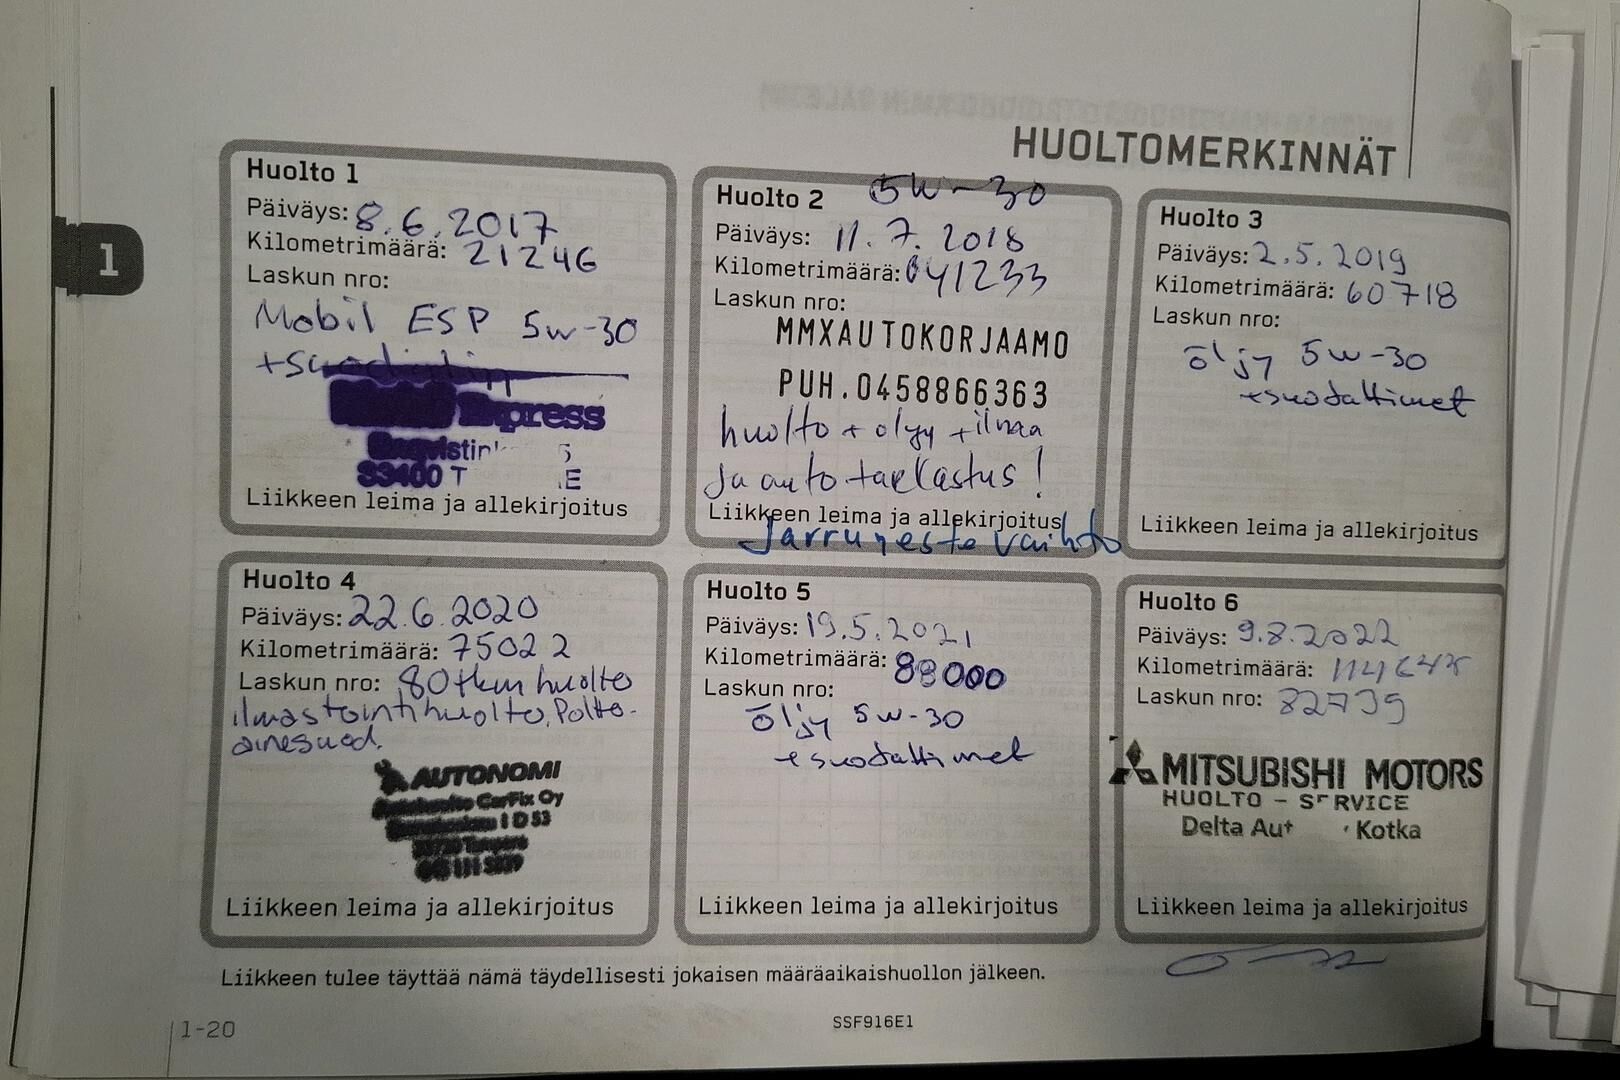 HUOLTOMERKINNÄT
1
Huolto 1
Päiväys: 8.6.2017
Kilometrimäärä: 21246
Laskun nro:
Mobil ESP 5w-30
Express
33400 T E
Liikkeen leima ja allekirjoitus
Huolto 2 5W-30
Päiväys: 11.7.2018
Kilometrimäärä: 041233
Laskun nro:
MMXAUTOKORJAAMO
PUH.0458866363
huolto + olyy + ilmaa
ja auto tarkastus!
Liikkeen leima ja allekirjoitus
Jarruneste vaihto
Huolto 3
Päiväys: 2.5.2019
Kilometrimäärä: 60718
Laskun nro:
öljy 5w-30
+suodattimet
Liikkeen leima ja allekirjoitus
Huolto 4
Päiväys: 22.6.2020
Kilometrimäärä: 75022
Laskun nro: 80tkm huolto
ilmastointihuolto, Poltto-
ainesuod.
AUTONOMI
CarFix Oy
1 D 53
Tampere
Liikkeen leima ja allekirjoitus
Huolto 5
Päiväys: 19.5.2021
Kilometrimäärä: 88000
Laskun nro:
öljy 5w-30
+suodattimet
Liikkeen leima ja allekirjoitus
Huolto 6
Päiväys: 9.8.2022
Kilometrimäärä:
Laskun nro: 82739
MITSUBISHI MOTORS
HUOLTO - SERVICE
Delta Aut Kotka
Liikkeen leima ja allekirjoitus
Liikkeen tulee täyttää nämä täydellisesti jokaisen määräaikaishuollon jälkeen.
1-20
SSF916E1